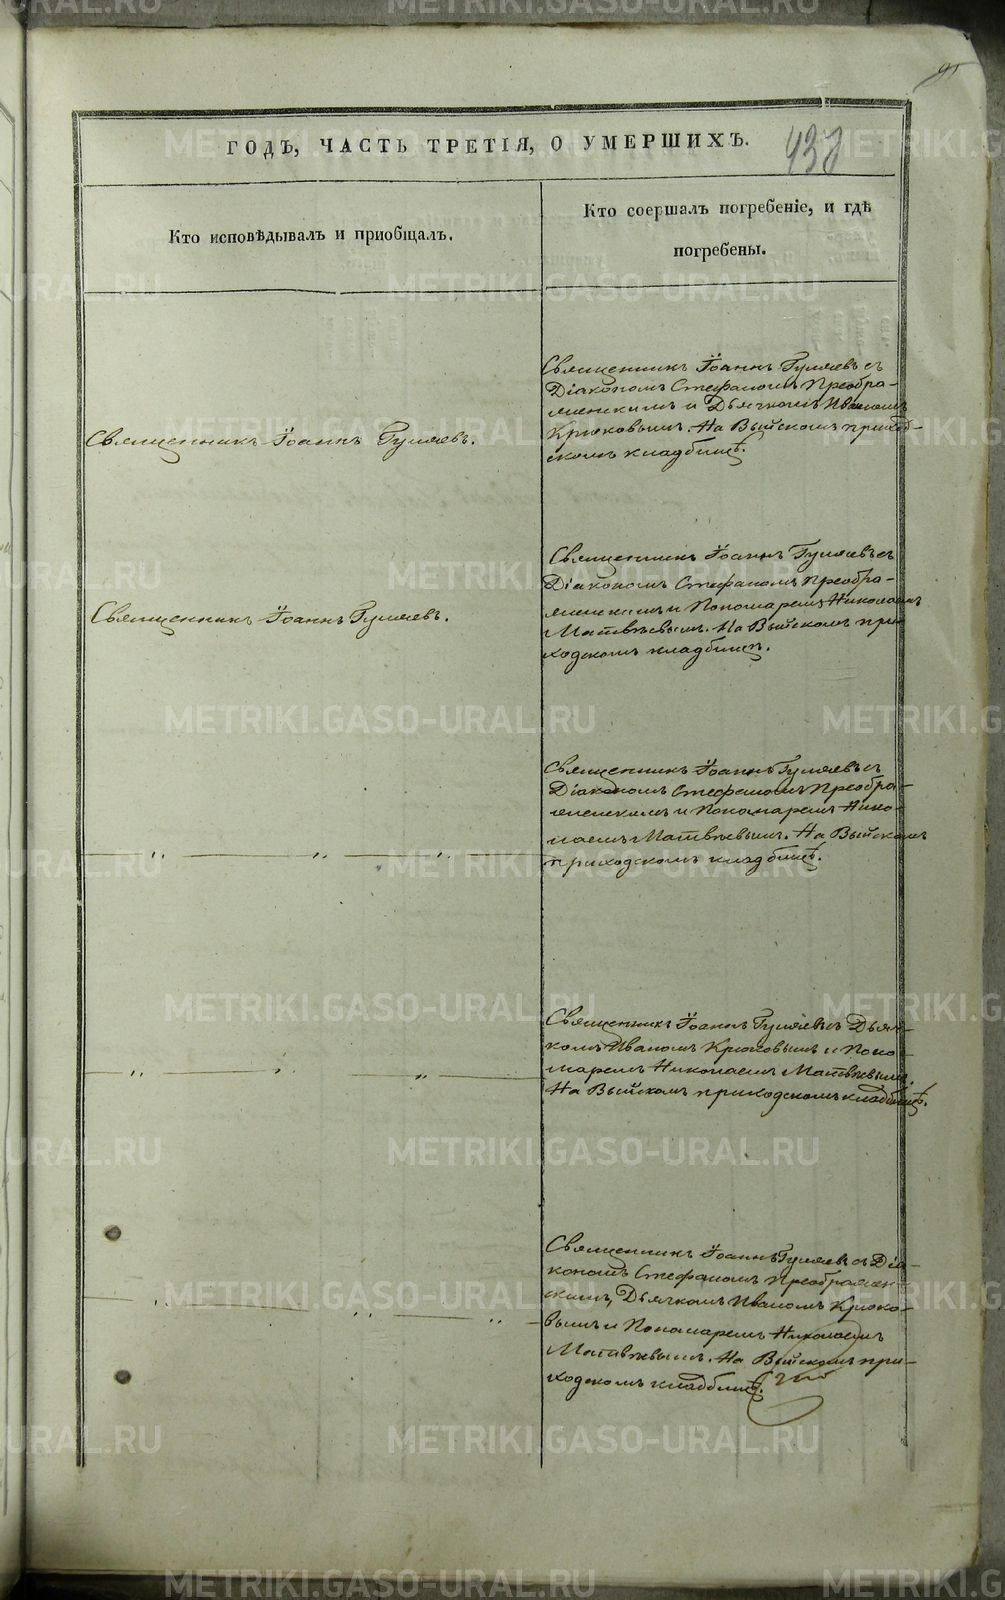 ГОДЪ, ЧАСТЬ ТРЕТІЯ, О УМЕРШИХЪ.
Кто исповѣдывалъ и приобщалъ.
Кто соершалъ погребеніе, и гдѣ
погребены.
Священникъ Іоаннъ Гуляевъ.
Священникъ Іоаннъ Гуляевъ съ
Діакономъ Стефаномъ Преобра-
женскимъ и Дьячкомъ Иваномъ
Крюковымъ. На Выйскомъ приход-
скомъ кладбищѣ.
Священникъ Іоаннъ Гуляевъ.
Священникъ Іоаннъ Гуляевъ съ
Діакономъ Стефаномъ Преобра-
женскимъ и Пономаремъ Николаемъ
Матвѣевымъ. На Выйскомъ при-
ходскомъ кладбищѣ.
Священникъ Іоаннъ Гуляевъ съ
Діакономъ Стефаномъ Преобра-
женскимъ и Пономаремъ Нико-
лаемъ Матвѣевымъ. На Выйскомъ
приходскомъ кладбищѣ.
Священникъ Іоаннъ Гуляевъ съ Дьяч-
комъ Иваномъ Крюковымъ и Поно-
маремъ Николаемъ Матвѣевымъ.
На Выйскомъ приходскомъ кладбищѣ.
Священникъ Іоаннъ Гуляевъ съ Діа-
кономъ Стефаномъ Преображен-
скимъ, Дьячкомъ Иваномъ Крюко-
вымъ и Пономаремъ Николаемъ
Матвѣевымъ. На Выйскомъ при-
ходскомъ кладбищѣ.
METRIKI.GASO-URAL.RU